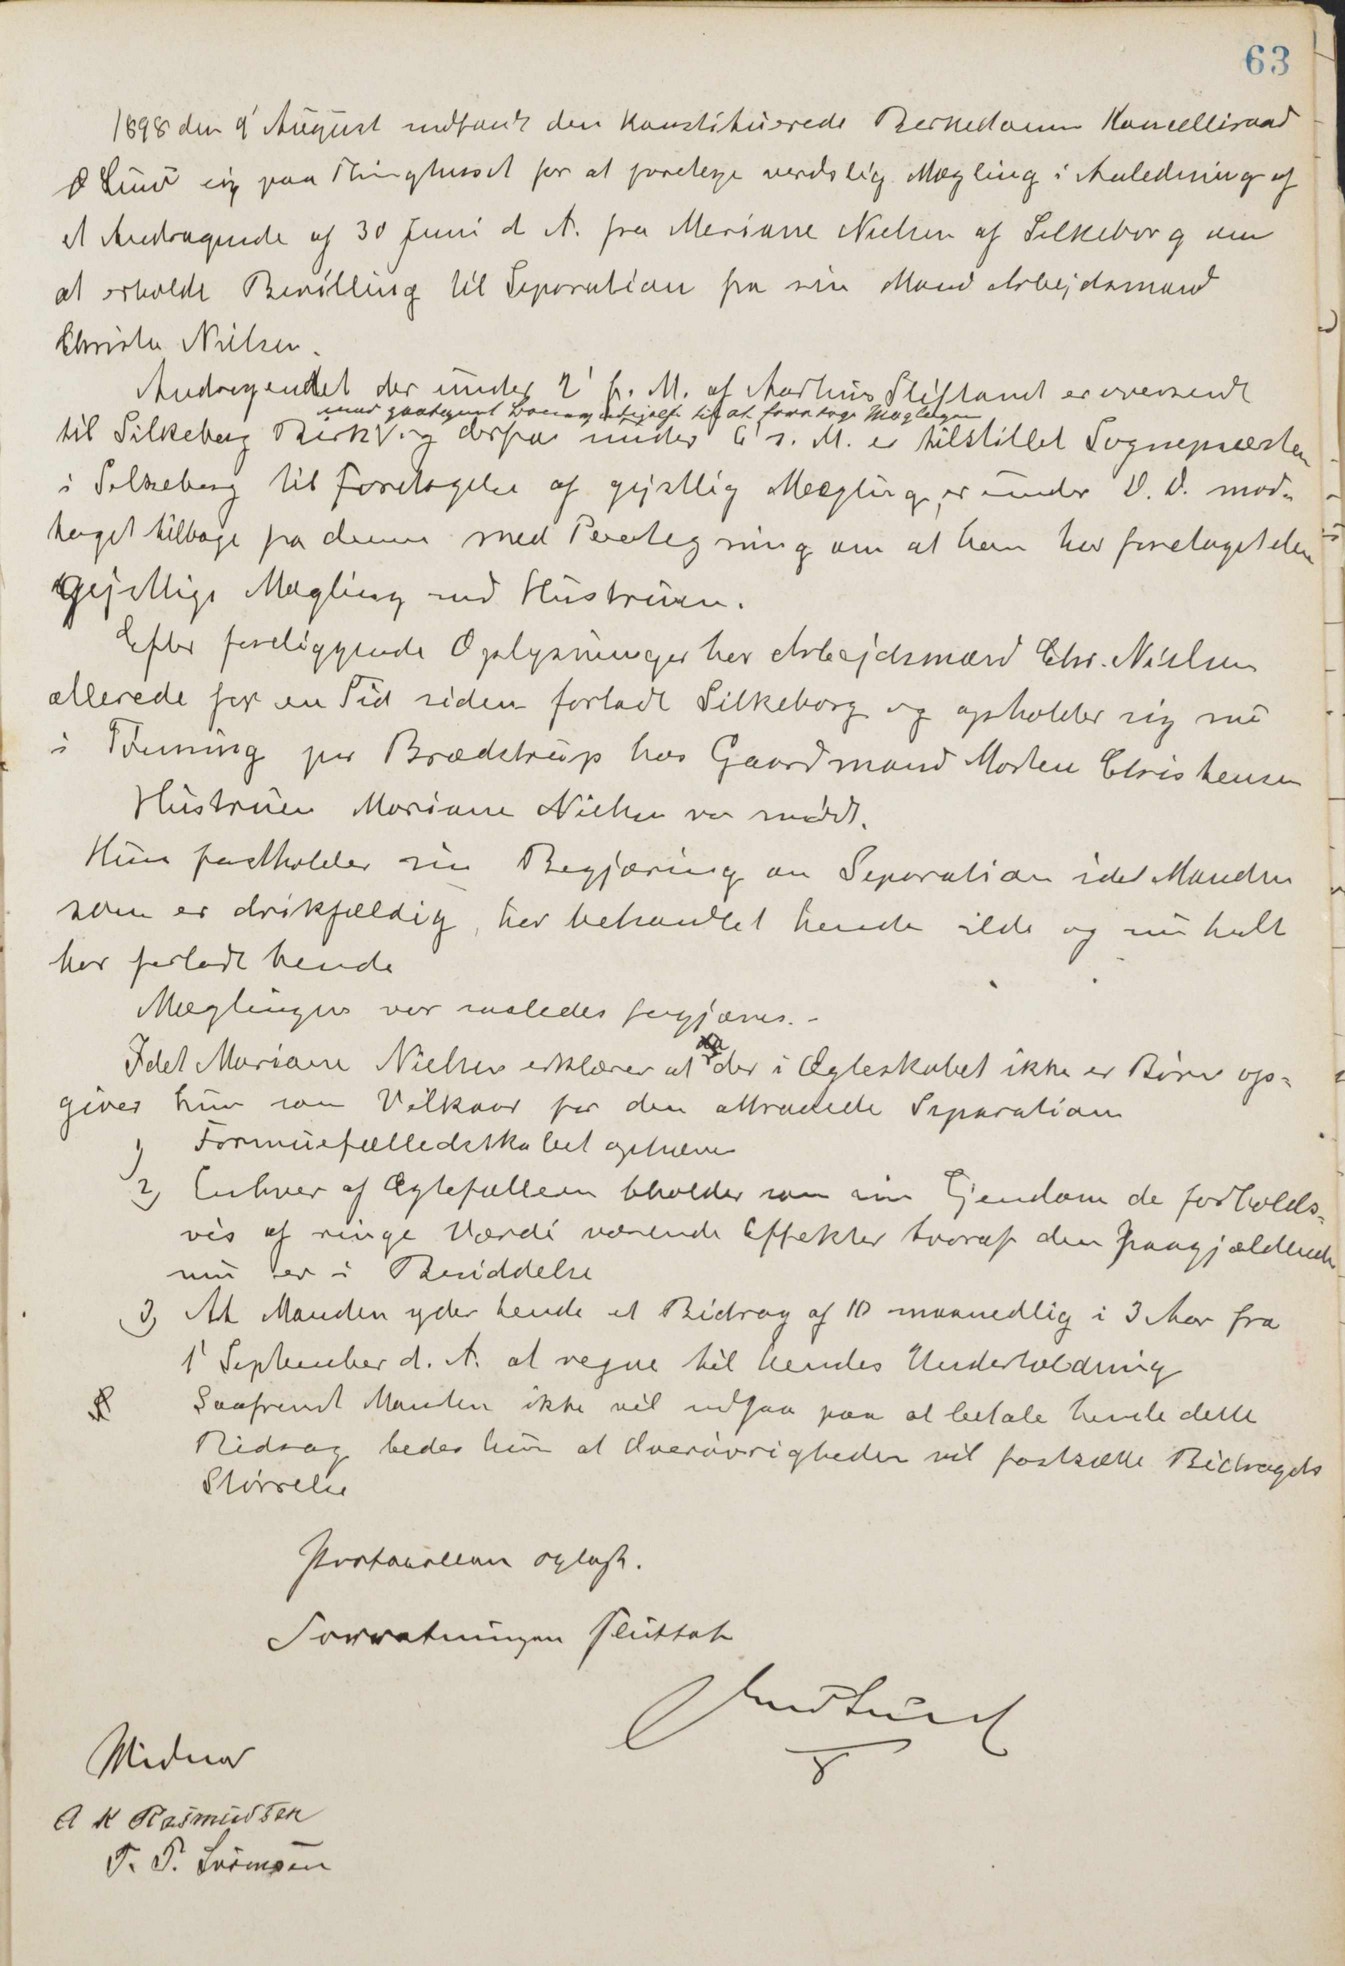 63
1898 den 9' August indfandt den konstituerede Birkedommer Kancelliraad
Lund sig paa Thinghuset for at foretage verdslig Mægling i Anledning af
et Andragende af 30 Juni d A. fra Mariane Nielsen af Silkeborg om
at erholde Bevilling til Separation fra sin Mand Arbejdsmand
Christen Nielsen.
Andragendet der under 2' f. M. af Aarhus Stiftamt er oversendt
til at foretage Mæglingen
til Silkeborg Birk og derfra under 6' s. M. er tilstillet Sognepræsten
i Silkeborg til Foretagelse af gejstlig Mægling, er under D. D. mod-
taget tilbage fra denne med Paategning om at han har foretaget den
gejstlige Mægling med Hustruen.
Efter foreliggende Oplysninger har Arbejdsmand Chr. Nielsen
allerede for en Tid siden forladt Silkeborg og opholder sig nu
i Tønning per Brædstrup hos Gaardmand Morten Christensen
Hustruen Mariane Nielsen var mødt.
Hun fastholder sin Begjæring om Separation idet Manden
som er drikfældig, har behandlet hende ilde og nu helt
har forladt hende
Mæglingen var saaledes forgjæves. -
Idet Mariane Nielsen erklærer at der i Ægteskabet ikke er Børn op-
giver hun som Vilkaar for den attraaede Separation
1) Formuefælledsskabet ophæves
2) Enhver af Ægtefællerne beholder som sin Ejendom de forholds-
vis af ringe Værdi værende Effekter hvoraf den paagjældende
nu er i Besiddelse
3) At Manden yder hende et Bidrag af 10 maanedlig i 3 Aar fra
1' September d. A. at regne til hendes Underholdning
Saafremt Manden ikke vil indgaa paa at betale hende dette
Bidrag beder hun at Overøvrigheden vil fastsætte Bidragets
Størrelse
Protocollen oplæst.
Forretningen sluttet
Lund
Vidner
A K Rasmussen
T. P. Sørensen